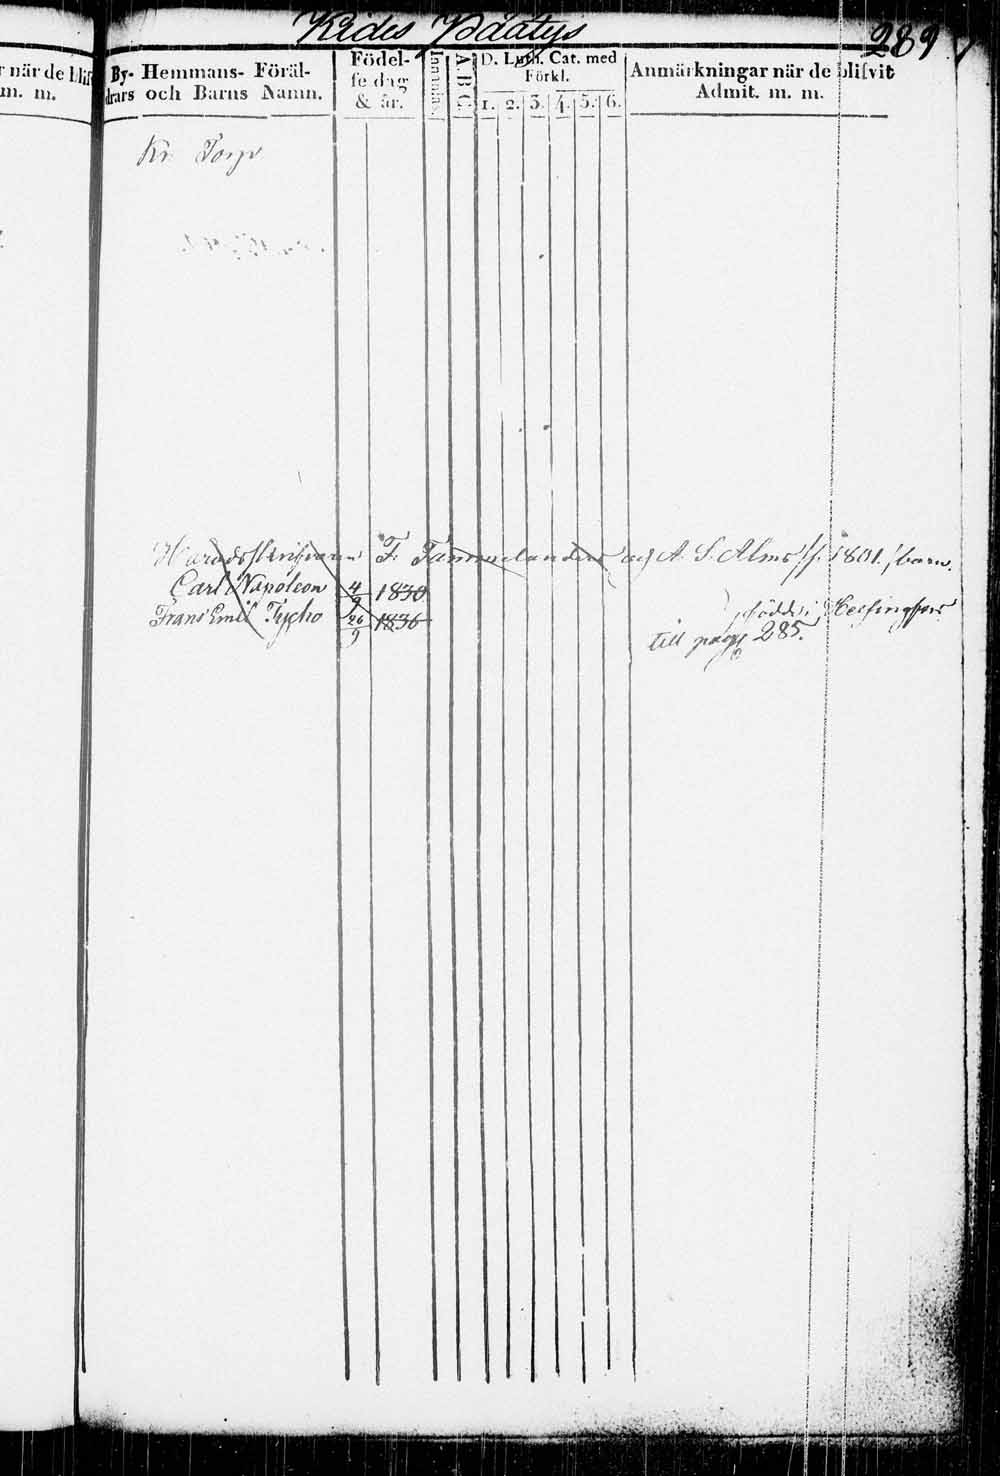 Kides Poatys
289
r när de blif
m. m.
By- Hemmans- Föräl-
drars och Barns Namn.
Födel-
se dag
& år.
Innnläs.
A. B. C.
D. Luth. Cat. med
Förkl.
1. 2. 3. 4. 5. 6.
Anmärkningar när de blifvit
Admit. m. m.
Kr. Torp
Häradsskrifvaren F. Tammelander och A. S. Alms f. 1801. barn.
Carl Napoleon 4/9 1830
Frans Emil Tycho 26/9 1836
födde i Helsingfors
till pag 285.